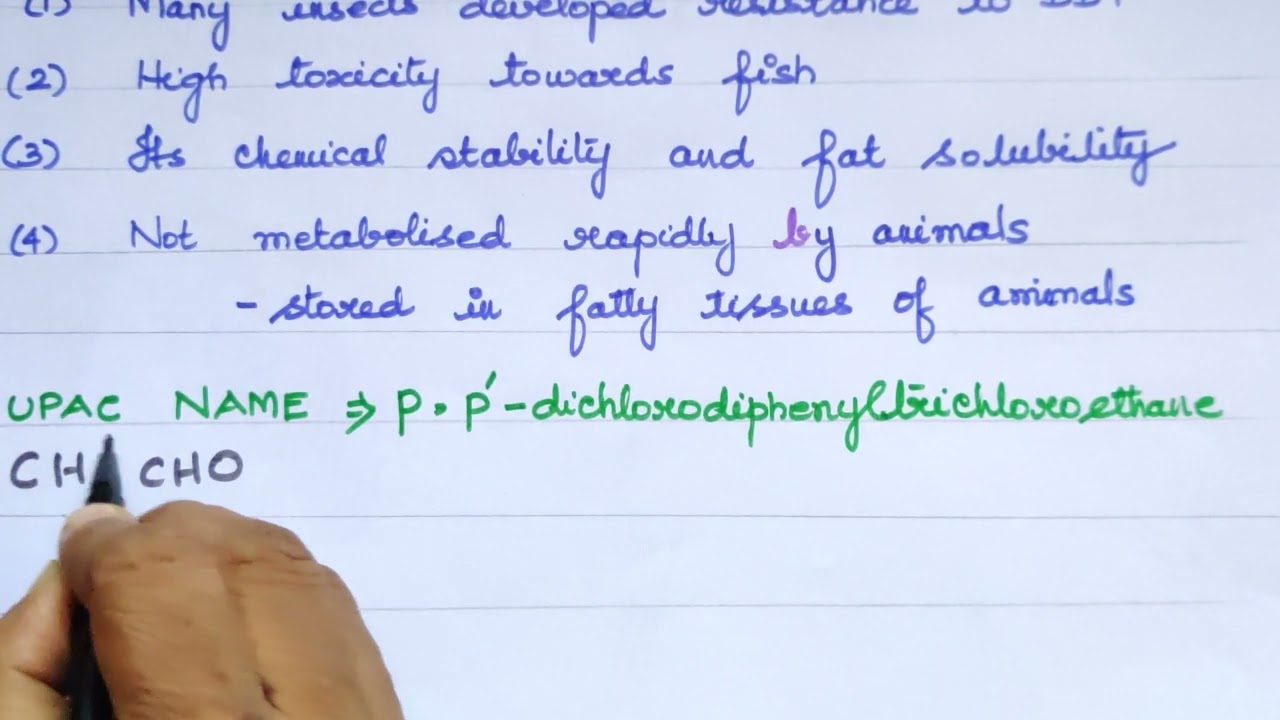 (1) Many insects developed resistance to DDT
(2) High toxicity towards fish
(3) Its chemical stability and fat solubility
(4) Not metabolised rapidly by animals
- stored in fatty tissues of animals
UPAC NAME ⇒ P.P′-dichlorodiphenyltrichloroethane
CH CHO